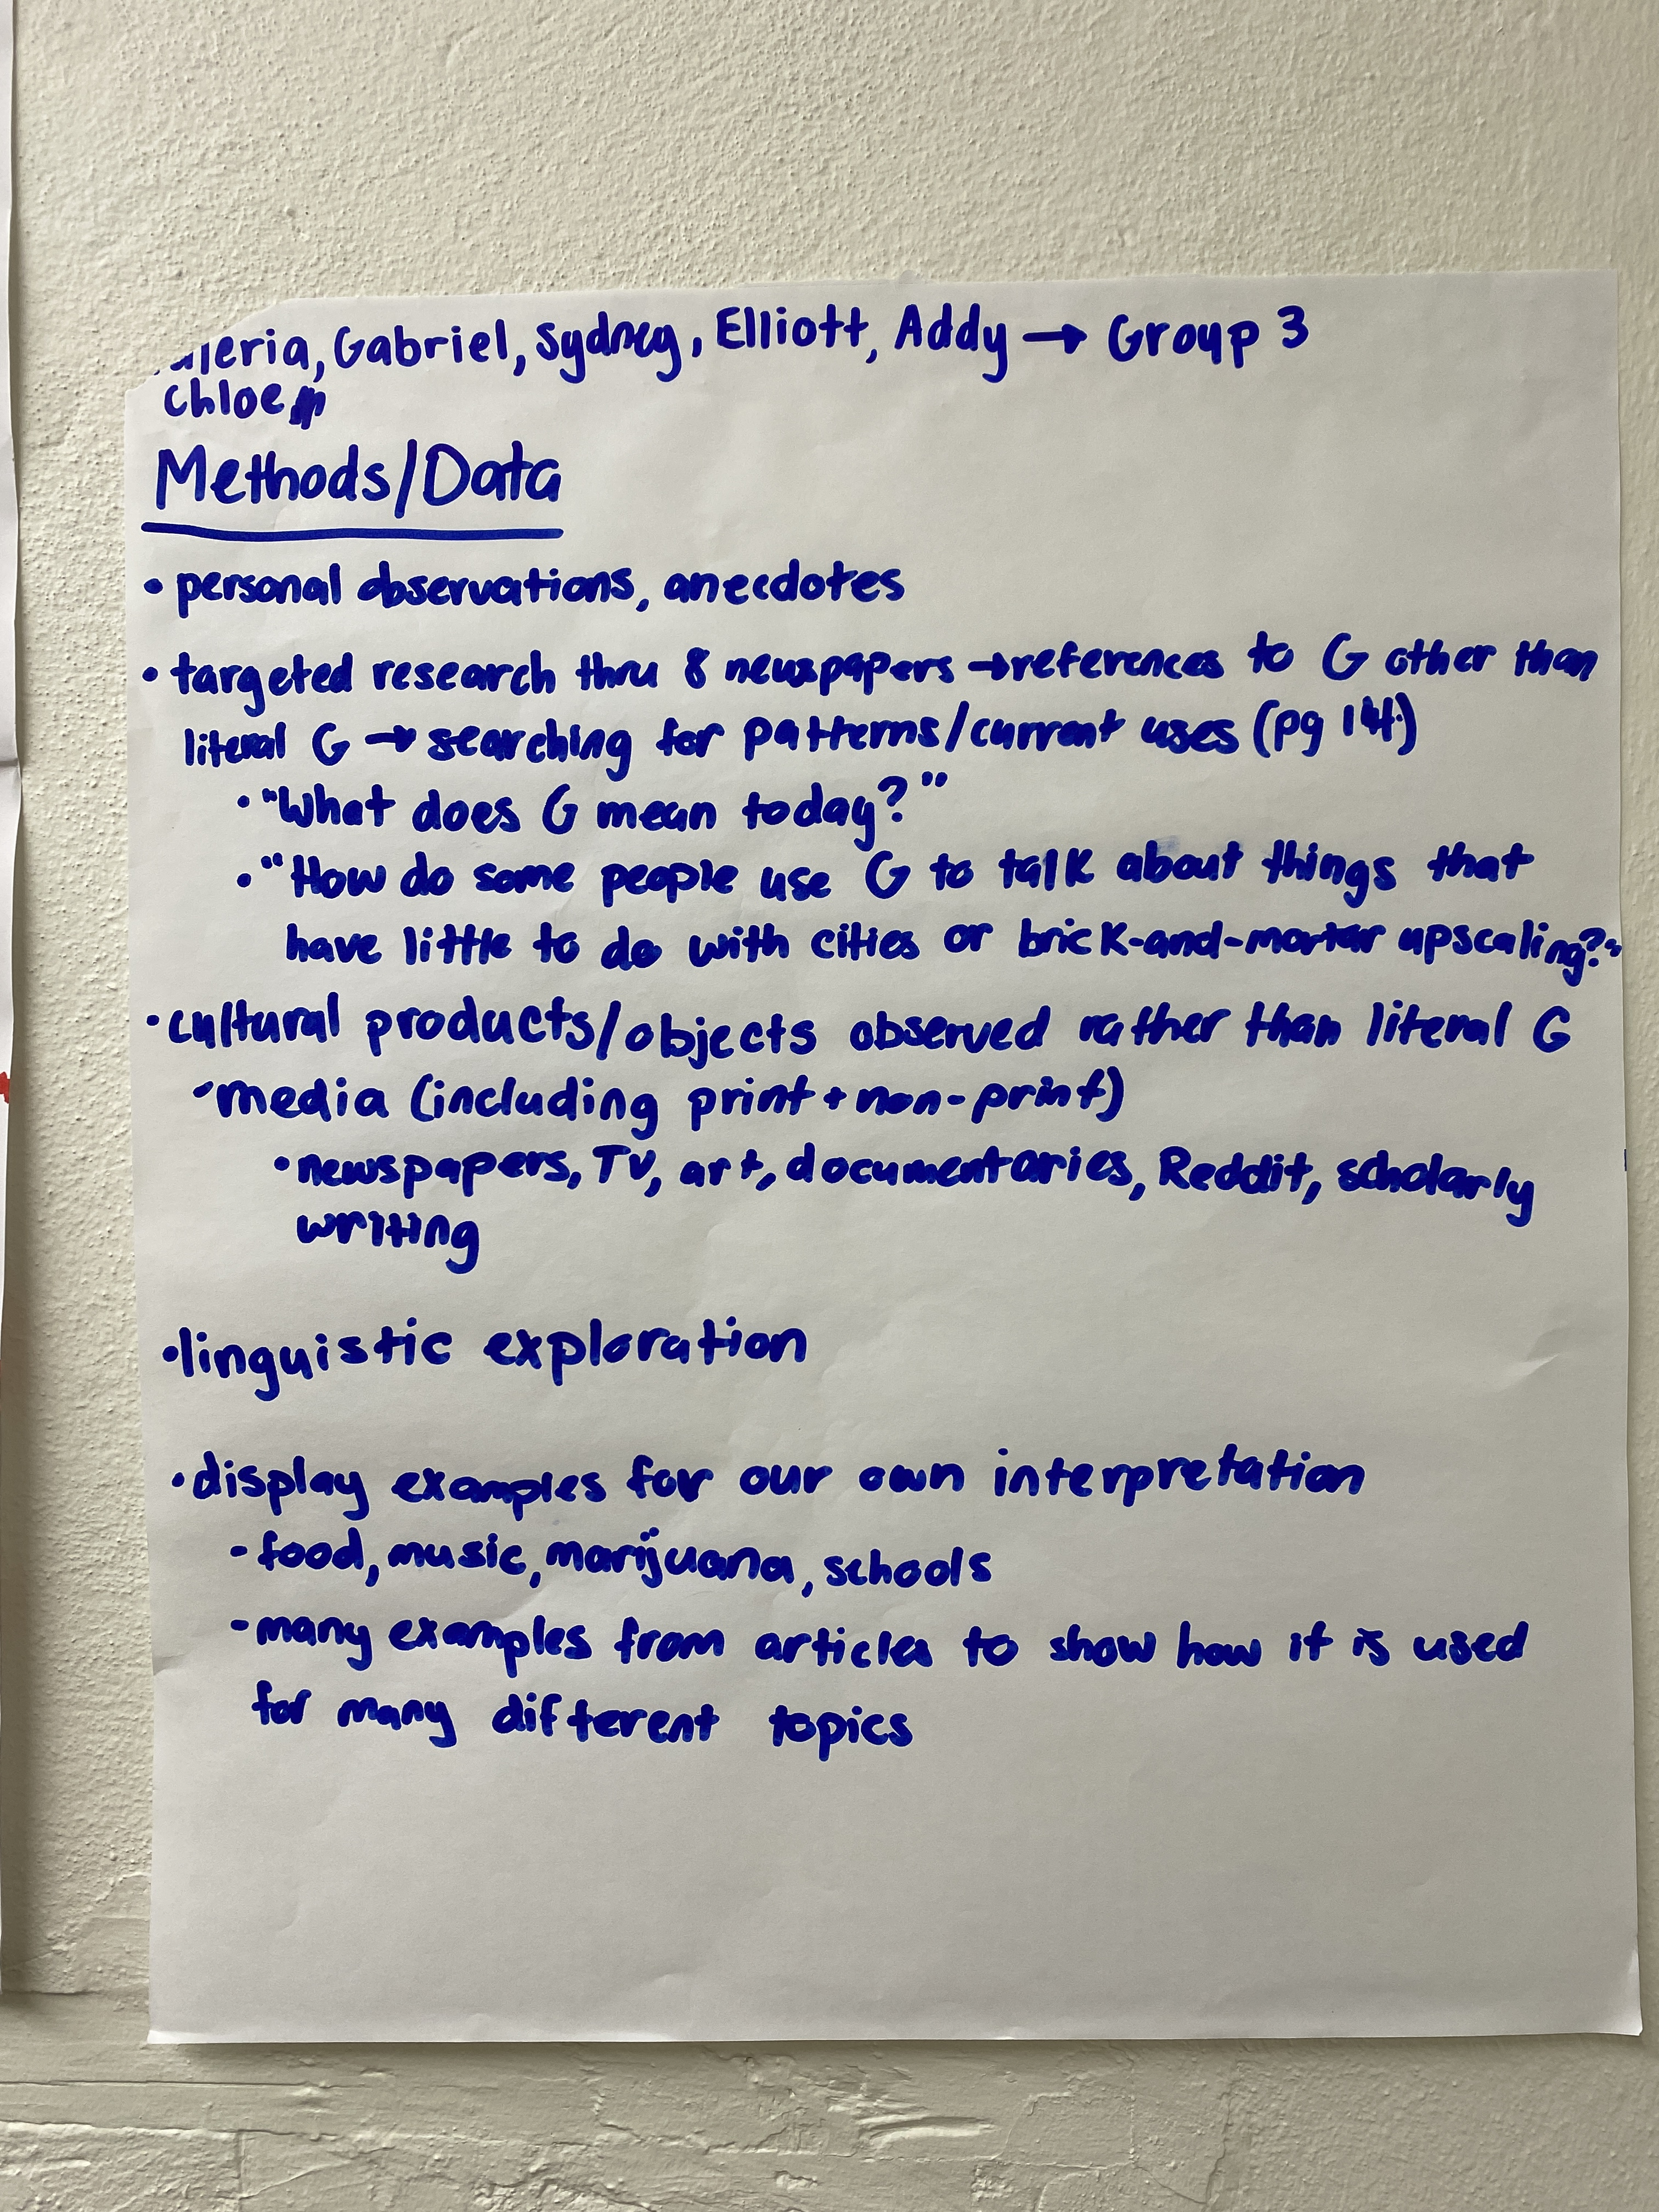 Gabriel, Sydney, Elliott, Addy → Group 3
Chloe
Methods/Data
• personal observations, anecdotes
• targeted research thru 8 newspapers → references to G other than
literal G → searching for patterns/current uses (pg 14)
• "What does G mean today?"
• "How do some people use G to talk about things that
have little to do with cities or brick-and-mortar upscaling?"
• cultural products/objects observed rather than literal G
- media (including print + non-print)
• newspapers, TV, art, documentaries, Reddit, scholarly
writing
• linguistic exploration
• display examples for our own interpretation
- food, music, marijuana, schools
- many examples from articles to show how it is used
for many different topics